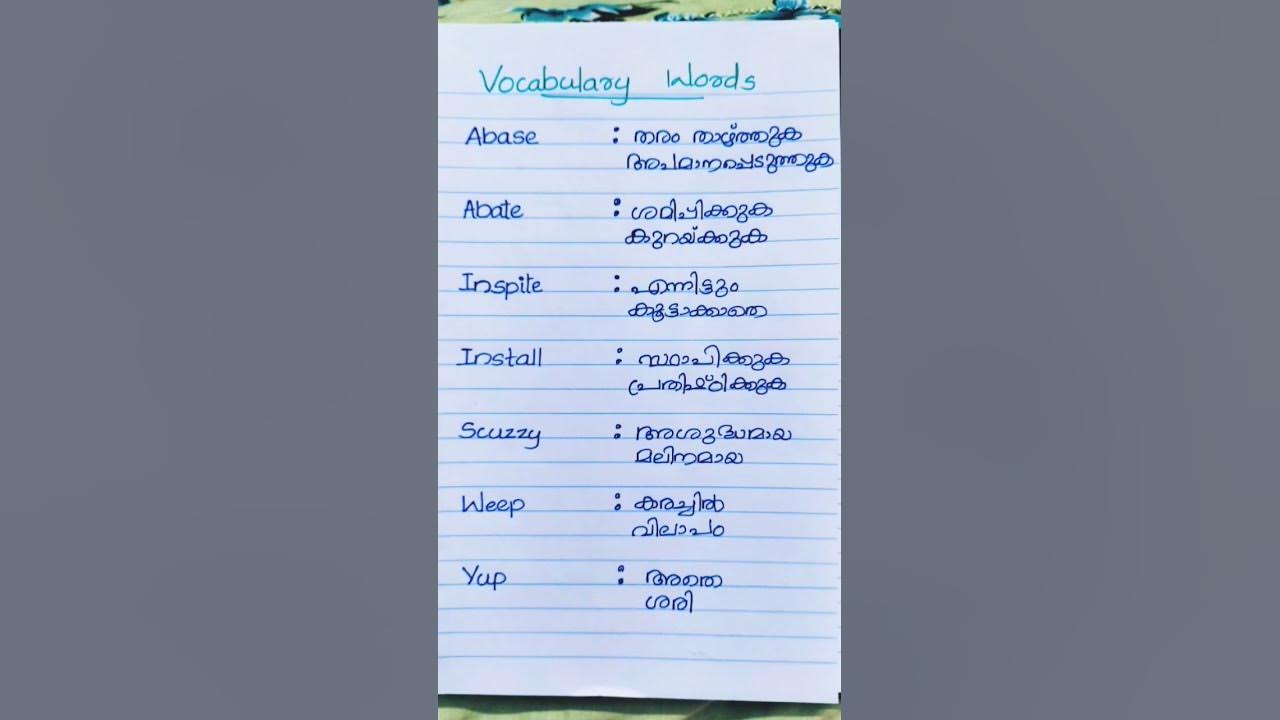 Vocabulary Words
Abase : തരം താഴ്ത്തുക
അപമാനപ്പെടുത്തുക
Abate : ശമിപ്പിക്കുക
കുറയ്ക്കുക
Inspite : എന്നിട്ടും
കൂട്ടാക്കാതെ
Install : സ്ഥാപിക്കുക
പ്രതിഷ്ഠിക്കുക
Scuzzy : അശുദ്ധമായ
മലിനമായ
Weep : കരച്ചിൽ
വിലാപം
Yup : അതെ
ശരി